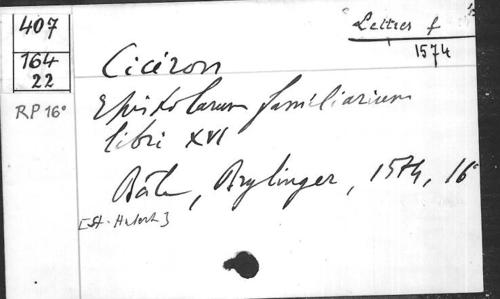 407
164
22
RP 16°
Lettres f
1574
Cicéron
Epistolarum familiarium
libri XVI
Bâle, Brylinger, 1574, 16°
[St-Hubert]